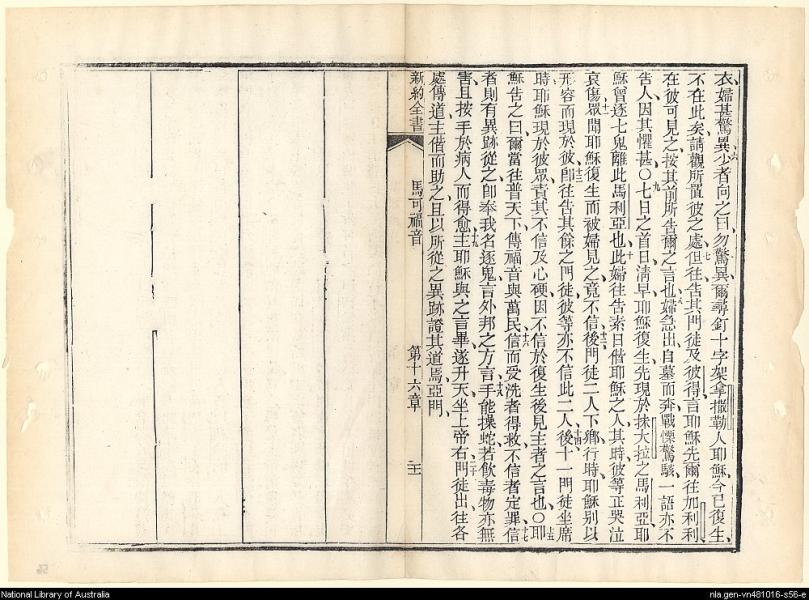 衣婦甚驚異少者向之曰勿驚異爾尋釘十字架拿撒勒人耶穌今已復生
六
不在此矣請觀所置彼之處但往告其門徒及彼得言耶穌先爾往加利利
七
在彼可見之按其前所告爾之言也婦急出自墓而奔戰慄驚駭一語亦不
八
告人因其懼甚〇七日之首日淸早耶穌復生先現於抹大拉之馬利亞耶
九
穌曾逐七鬼離此馬利亞也此婦往告素日偕耶穌之人其時彼等正哭泣
十
哀傷眾聞耶穌復生而被婦見之竟不信後門徒二人下鄉行時耶穌別以
十一
十二
形容而現於彼卽往告其餘之門徒彼等亦不信此二人後十一門徒坐席
十三
十四
時耶穌現於彼眾責其不信及心硬因不信於復生後見主者之言也〇耶
十五
穌告之曰爾當往普天下傳福音與萬民信而受洗者得救不信者定罪信
十六
十七
者則有異跡從之卽奉我名逐鬼言外邦之方言手能操蛇若飲毒物亦無
十八
害且按手於病人而得愈主耶穌與之言畢遂升天坐上帝右門徒出往各
十九
二十
處傳道主偕而助之且以所從之異跡證其道焉亞門
新約全書
馬可福音
第十六章
National Library of Australia
nla.gen-vn481016-s56-e